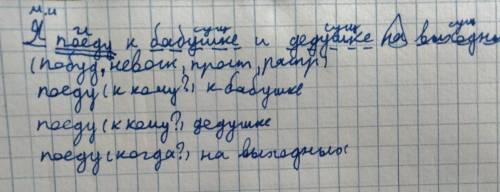 м.и г. сущ сущ сущ
Я поеду к бабушке и дедушке на выходны
(побуд, невоск, прост, распр)
поеду (к кому?) к бабушке
поеду (к кому?) дедушке
поеду (когда?) на выходных